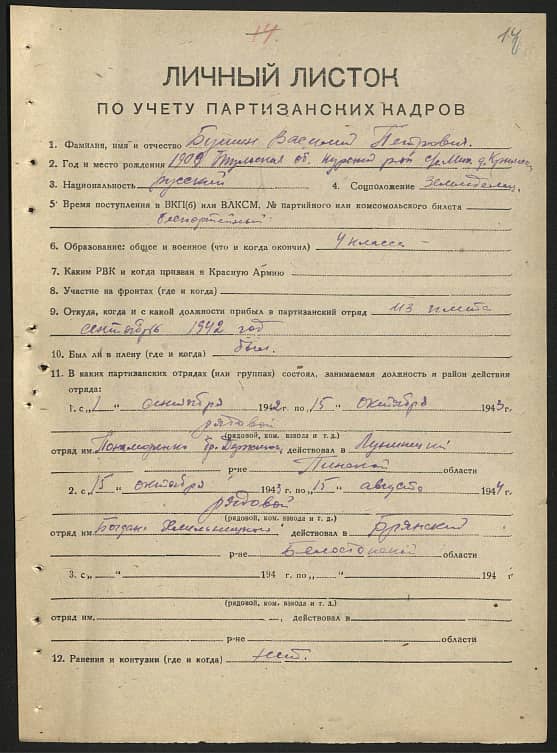 14
14
ЛИЧНЫЙ ЛИСТОК
ПО УЧЕТУ ПАРТИЗАНСКИХ КАДРОВ
1. Фамилия, имя и отчество Василий Петрович.
2. Год и место рождения 1909 Тульская об.
3. Национальность русский 4. Соцположение
5. Время поступления в ВКП(б) или ВЛКСМ, № партийного или комсомольского билета
беспартейный
6. Образование: общее и военное (что и когда окончил) 4 класса
7. Каким РВК и когда призван в Красную Армию
8. Участие на фронтах (где и когда)
9. Откуда, когда и с какой должности прибыл в партизанский отряд из плена
сентябрь 1942 год
10. Был ли в плену (где и когда) был.
11. В каких партизанских отрядах (или группах) состоял, занимаемая должность и район действия
отряда:
1. с „1“ сентября 1942 г. по „15“ октября 1943 г.
рядовой
(рядовой, ком. взвода и т. д.)
отряд им. Пономаренко бр. действовал в Лунинецкий
р-не Пинской области
2. с „15“ октября 1943 г. по „15“ августа 1944 г.
рядовой
(рядовой, ком. взвода и т. д.)
отряд им. Богдана Хмельницкого действовал в Брянский
р-не Белостокской области
3. с „ “ 194 г. по „ “ 194 г.
(рядовой, ком. взвода и т. д.)
отряд им. , действовал в
р-не области
12. Ранения и контузии (где и когда) нет.